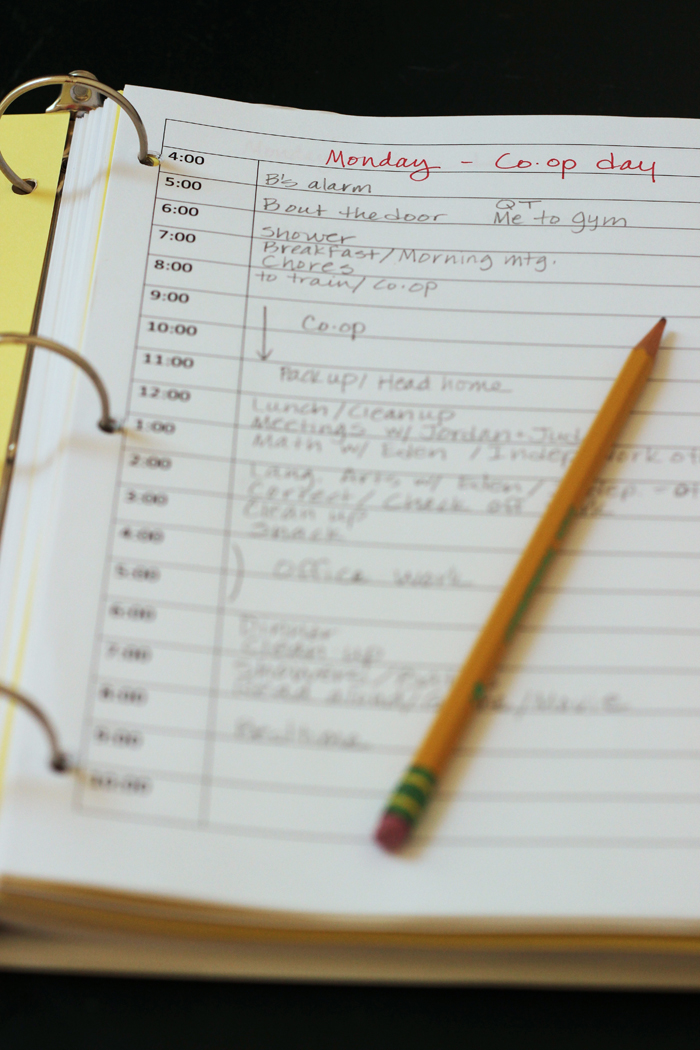 Monday - Co-op day
4:00
5:00 B's alarm
6:00 B out the door QT
Me to gym
7:00 Shower
Breakfast/Morning mtg.
8:00 Chores
to train/Co-op
9:00
10:00 Co-op
11:00
Pack up/Head home
12:00
Lunch/Cleanup
1:00 Meetings w/ Jordan + Jud
Math w/ Eden / Indep. work
2:00
Lang. Arts w/ Eden/
3:00 Correct/Check off
Clean up
4:00 Snack
5:00 Office work
6:00
Dinner
7:00 Clean up
Showers/
8:00 Read aloud/
9:00
Bedtime
10:00